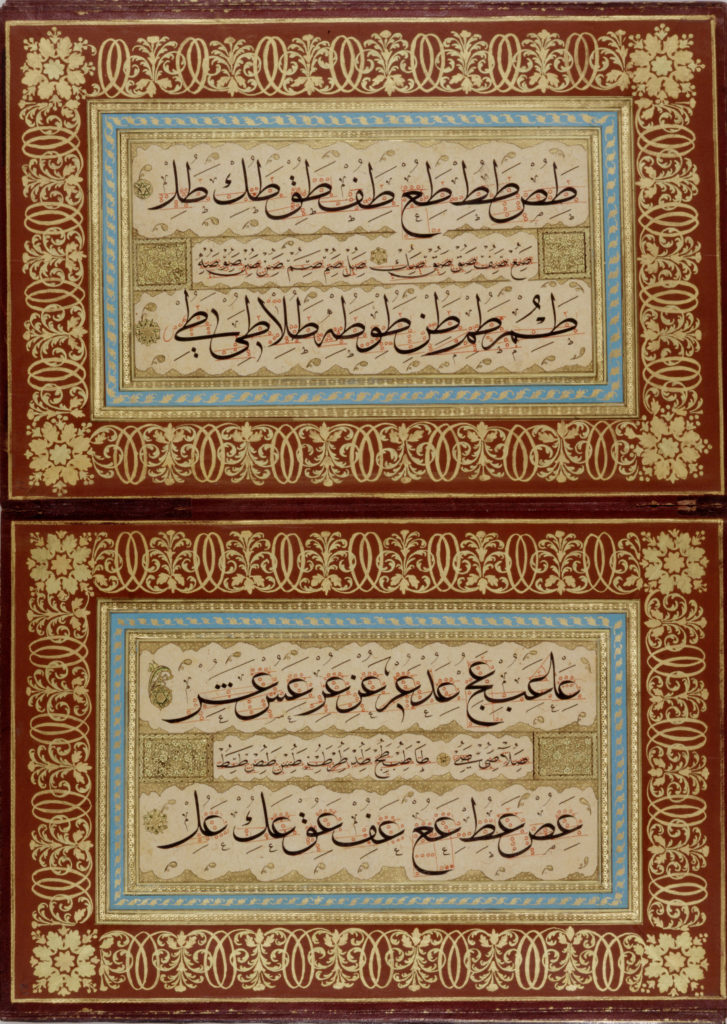 طص طط طع طف طق طك طل
صع صف صق صق صك صل صم صم صن صن صو صه
طم طم طن طو طه طلا طى طى
عا عب عج عد عر عز عر عس عش
صلا صى صى طا طب طح طد طر طس طص طط
عص عط عع عف عق عك عل